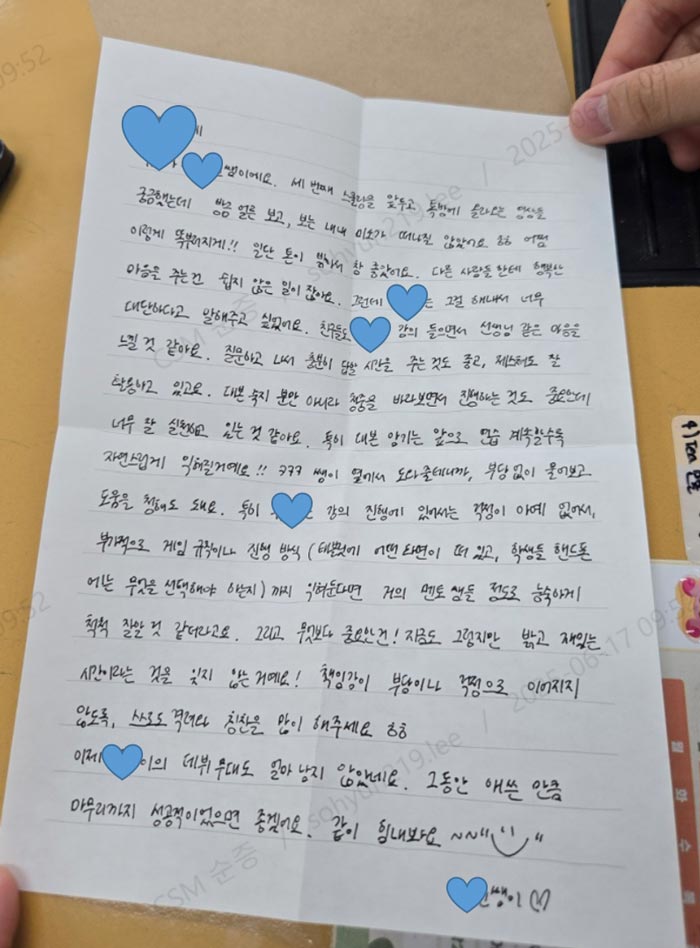 에게
쌤이에요. 세 번째 스쿨링을 앞두고, 톡방에 올라오는 영상들
궁금했는데 방금 얼른 보고, 보는 내내 미소가 떠나질 않았어요 ㅎㅎ 어쩜
이렇게 똑부러지게!! 일단 톤이 밝아서 참 좋았어요. 다른 사람들한테 행복한
마음을 주는 건 쉽지 않은 일이잖아요. 그런데 는 그걸 해내서 너무
대단하다고 말해주고 싶었어요. 친구들도 강의 들으면서 선생님 같은 마음을
느낄 것 같아요. 질문하고 나서 충분히 답할 시간을 주는 것도 좋고, 제스처도 잘
활용하고 있고요. 대본 숙지 뿐만 아니라 청중을 바라보면서 진행하는 것도 중요한데
너무 잘 실천하고 있는 것 같아요. 특히 대본 암기는 앞으로 연습 계속할수록
자연스럽게 익혀질거예요!! ㅋㅋㅋ 쌤이 옆에서 도와줄테니까, 부담없이 물어보고
도움을 청해도 돼요. 특히 는 강의 진행에 있어서는 걱정이 아예 없어서,
부가적으로 게임 규칙이나 진행 방식 (태블릿에 어떤 화면이 떠 있고, 학생들 핸드폰
에는 무엇을 선택해야 하는지) 까지 익혀둔다면 거의 멘토쌤들 정도로 능숙하게
척척 잘할 것 같더라고요. 그리고 무엇보다 중요한건! 지금도 그렇지만 밝고 재밌는
시간이라는 것을 잊지 않는거예요! 책임감이 부담이나 걱정으로 이어지지
않도록, 스스로도 격려와 칭찬을 많이 해주세요 ㅎㅎ
이제 이의 데뷔 무대도 얼마 남지 않았네요. 그동안 애쓴 만큼
마무리까지 성공적이었으면 좋겠어요. 같이 힘내봐요 ~~" "
쌤이 ♡
09:52
2025-06-17 09:52
sohyun219.lee
CSM 순증
월
화
수
목